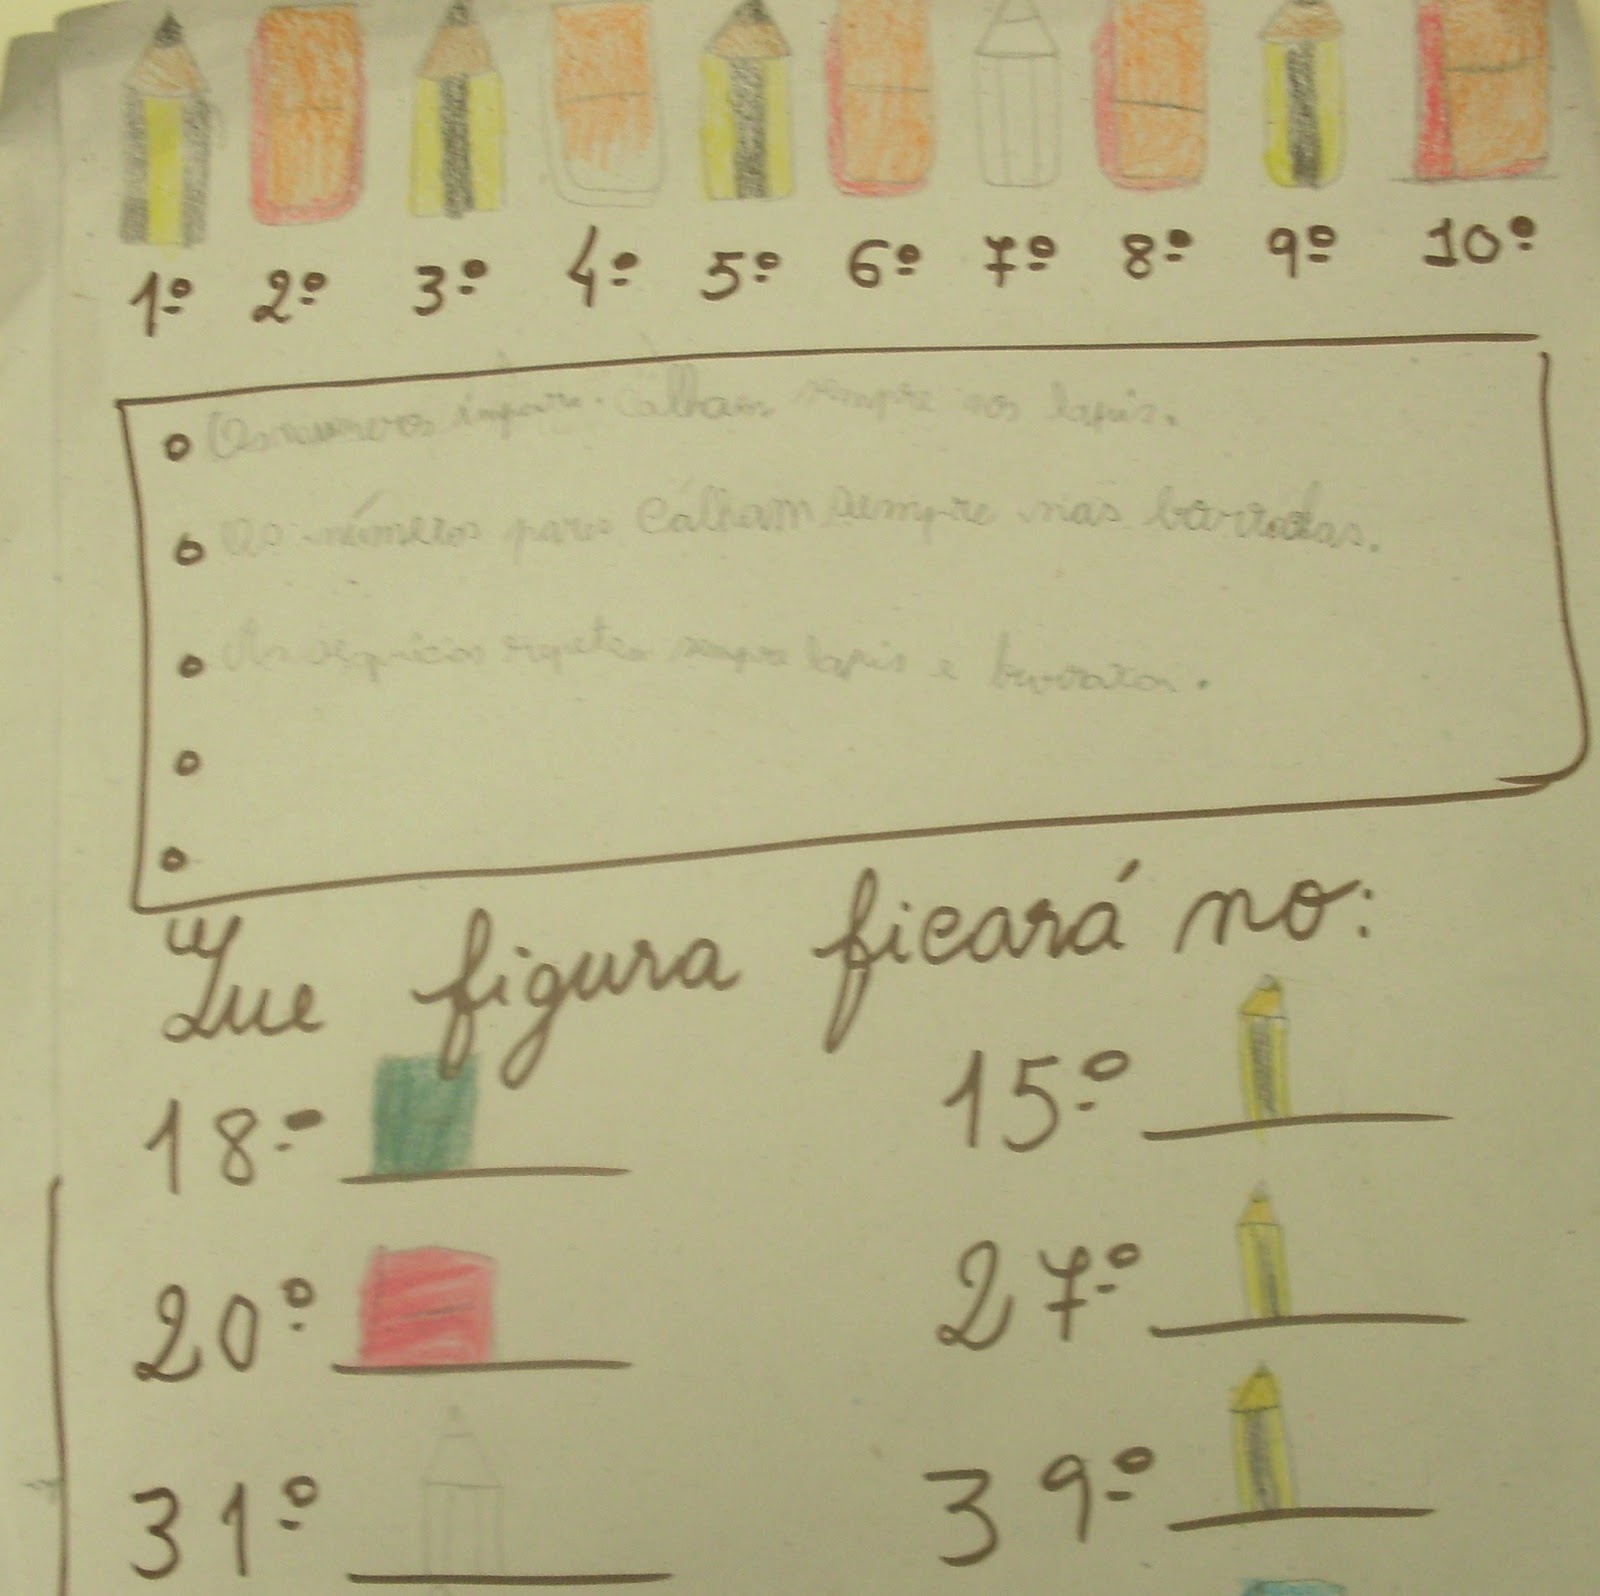 1º 2º 3º 4º 5º 6º 7º 8º 9º 10º
Os numeros calham sempre nos lapis.
Os números pares calham sempre nas borrachas.
As sempre lapis e borracha.
Que figura ficará no:
18º 15º
20º 27º
31º 39º